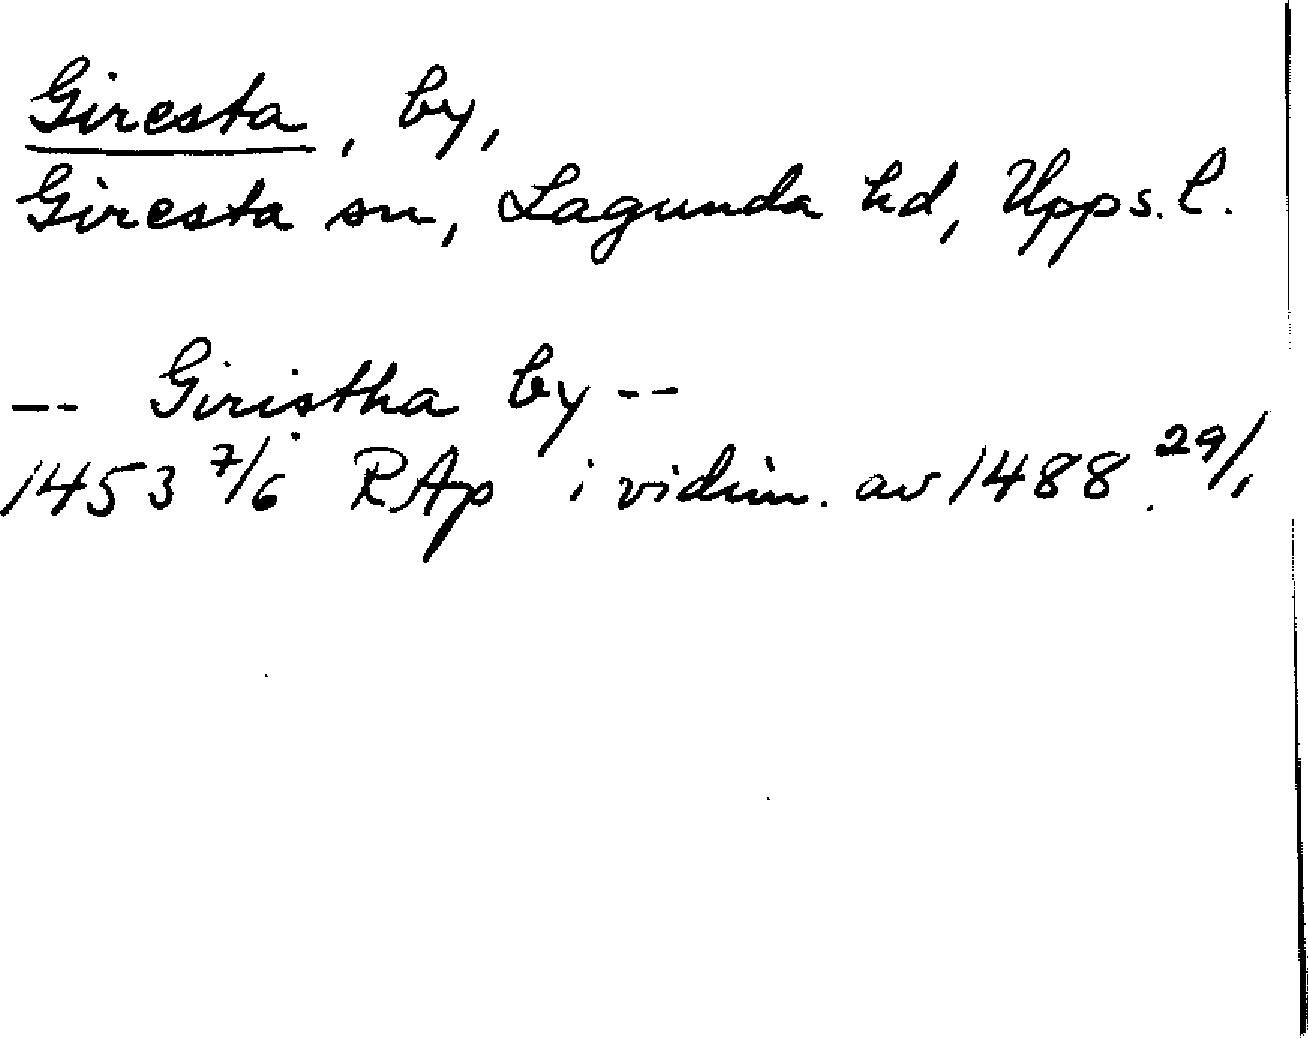 Giresta, by,
Giresta sn, Lagunda hd, Upps. l.
-- Giristha by --
1453 7/6 RAp i vidim. av 1488 29/1.